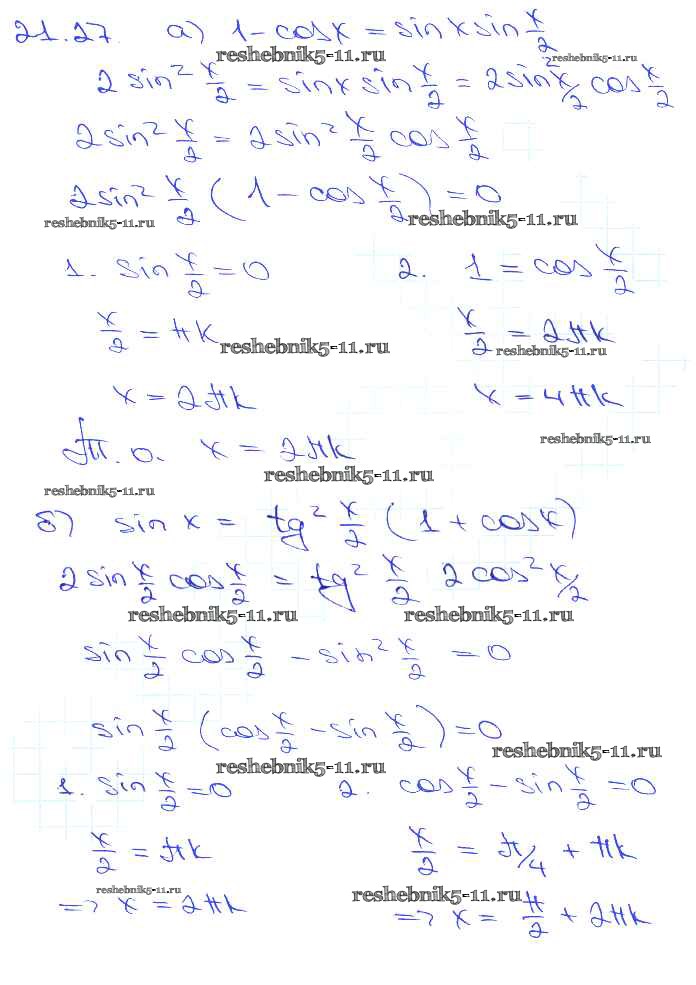 21.27. а) 1 - cos x = sin x sin x/2
reshebnik5-11.ru reshebnik5-11.ru
2 sin² x/2 = sin x sin x/2 = 2 sin² x/2 cos x/2
2 sin² x/2 = 2 sin² x/2 cos x/2
2 sin² x/2 (1 - cos x/2) = 0
reshebnik5-11.ru reshebnik5-11.ru
1. sin x/2 = 0 2. 1 = cos x/2
x/2 = πk x/2 = 2πk
reshebnik5-11.ru reshebnik5-11.ru
x = 2πk x = 4πk
reshebnik5-11.ru
Т.о. x = 2πk
reshebnik5-11.ru reshebnik5-11.ru
б) sin x = tg² x/2 (1 + cos x)
2 sin x/2 cos x/2 = tg² x/2 2 cos² x/2
reshebnik5-11.ru reshebnik5-11.ru
sin x/2 cos x/2 - sin² x/2 = 0
sin x/2 (cos x/2 - sin x/2) = 0
reshebnik5-11.ru reshebnik5-11.ru
1. sin x/2 = 0 2. cos x/2 - sin x/2 = 0
x/2 = πk x/2 = π/4 + πk
reshebnik5-11.ru reshebnik5-11.ru
=> x = 2πk => x = π/2 + 2πk